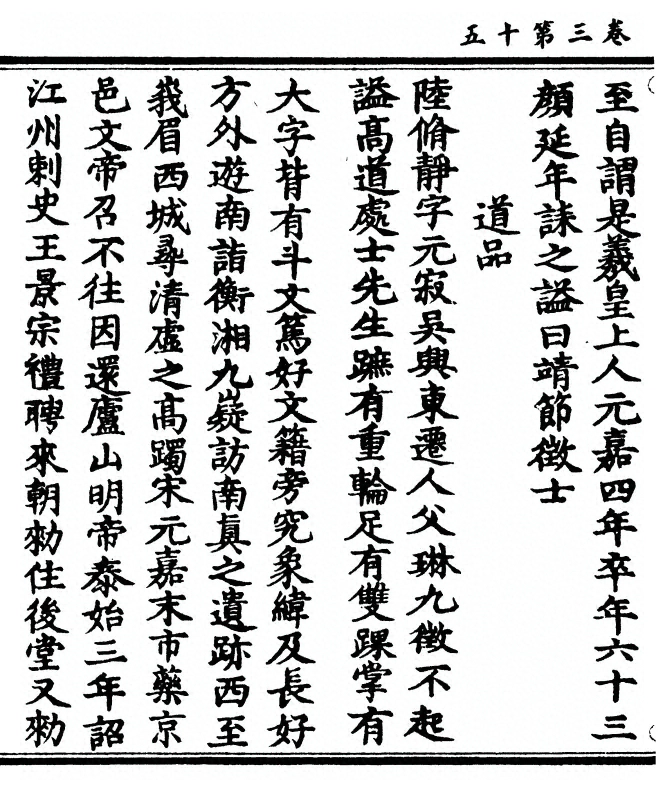 卷三第十五
至自謂是羲皇上人元嘉四年卒年六十三
顏延年誄之謚曰靖節徵士
道品
陸脩靜字元寂吳興東遷人父琳九徵不起
謚高道處士先生蹠有重輪足有雙踝掌有
大字背有斗文篤好文籍旁究象緯及長好
方外遊南詣衡湘九嶷訪南真之遺跡西至
峩眉西城尋清虛之高躅宋元嘉末市藥京
邑文帝召不往因還廬山明帝泰始三年詔
江州刺史王景宗禮聘來朝勑住後堂又勑